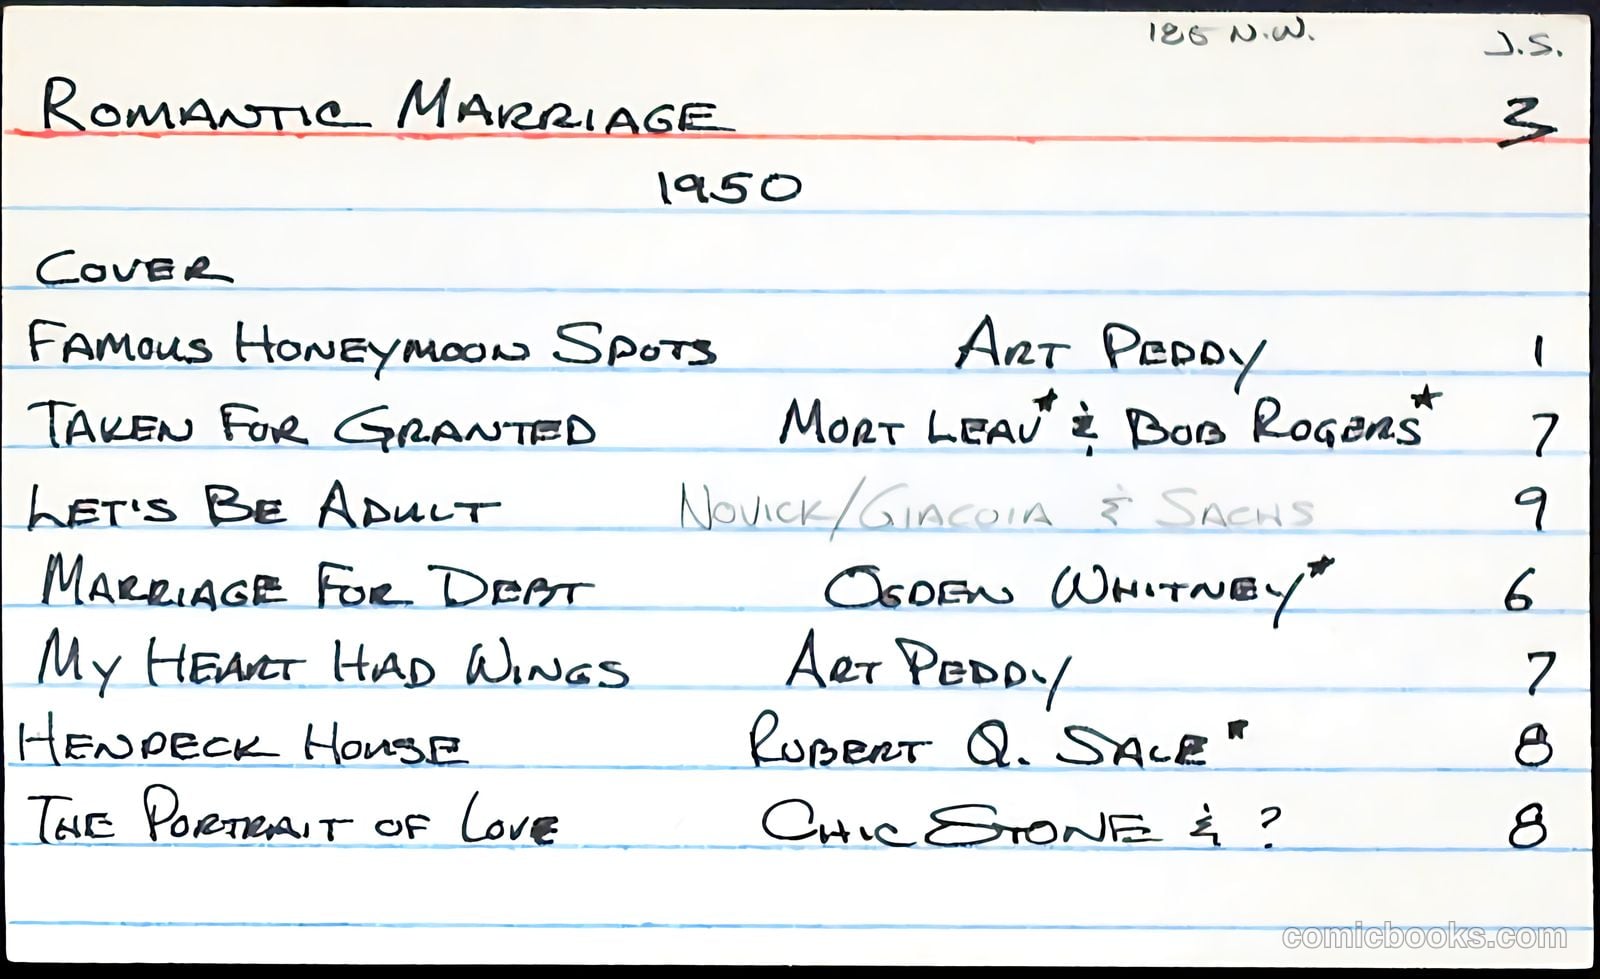 185 N.W. J.S.
ROMANTIC MARRIAGE 3
1950
COVER
FAMOUS HONEYMOON SPOTS ART PEDDY 1
TAKEN FOR GRANTED MORT LEAV* & BOB ROGERS* 7
LET'S BE ADULT NOVICK/GIACOIA & SACHS 9
MARRIAGE FOR DEBT OGDEN WHITNEY* 6
MY HEART HAD WINGS ART PEDDY 7
HENPECK HOUSE ROBERT Q. SALE* 8
THE PORTRAIT OF LOVE CHIC STONE & ? 8
comicbooks.com